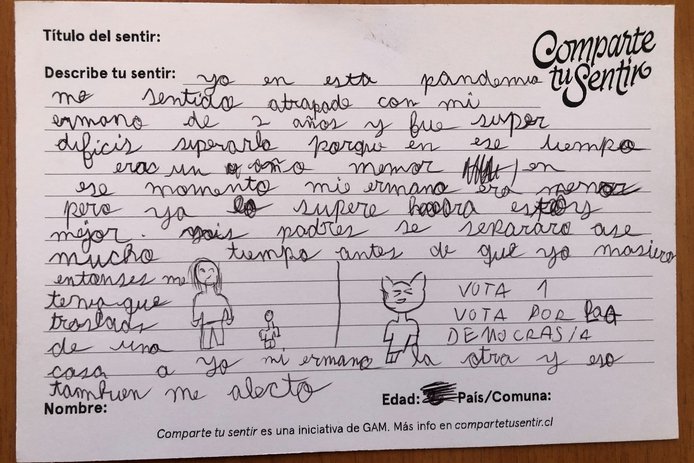 Título del sentir:
Comparte
tu Sentir
Describe tu sentir: yo en esta pandemia
me sentido atrapado con mi
ermano de 2 años y fue super
dificis superarlo porque en ese tiempo
eras un año memor en
ese momento mi ermano era menor
pero ya lo supere haora estoy
mejor. mis padres se separaro ase
mucho tiempo antes de que yo nasiero
entonses me
tenia que
traslads
de una
casa a yo mi ermano la otra y eso
tambien me afecto
VOTA 1
VOTA POR LA
DEMOCRASIA
Nombre: Edad: País/Comuna:
Comparte tu sentir es una iniciativa de GAM. Más info en compartetusentir.cl